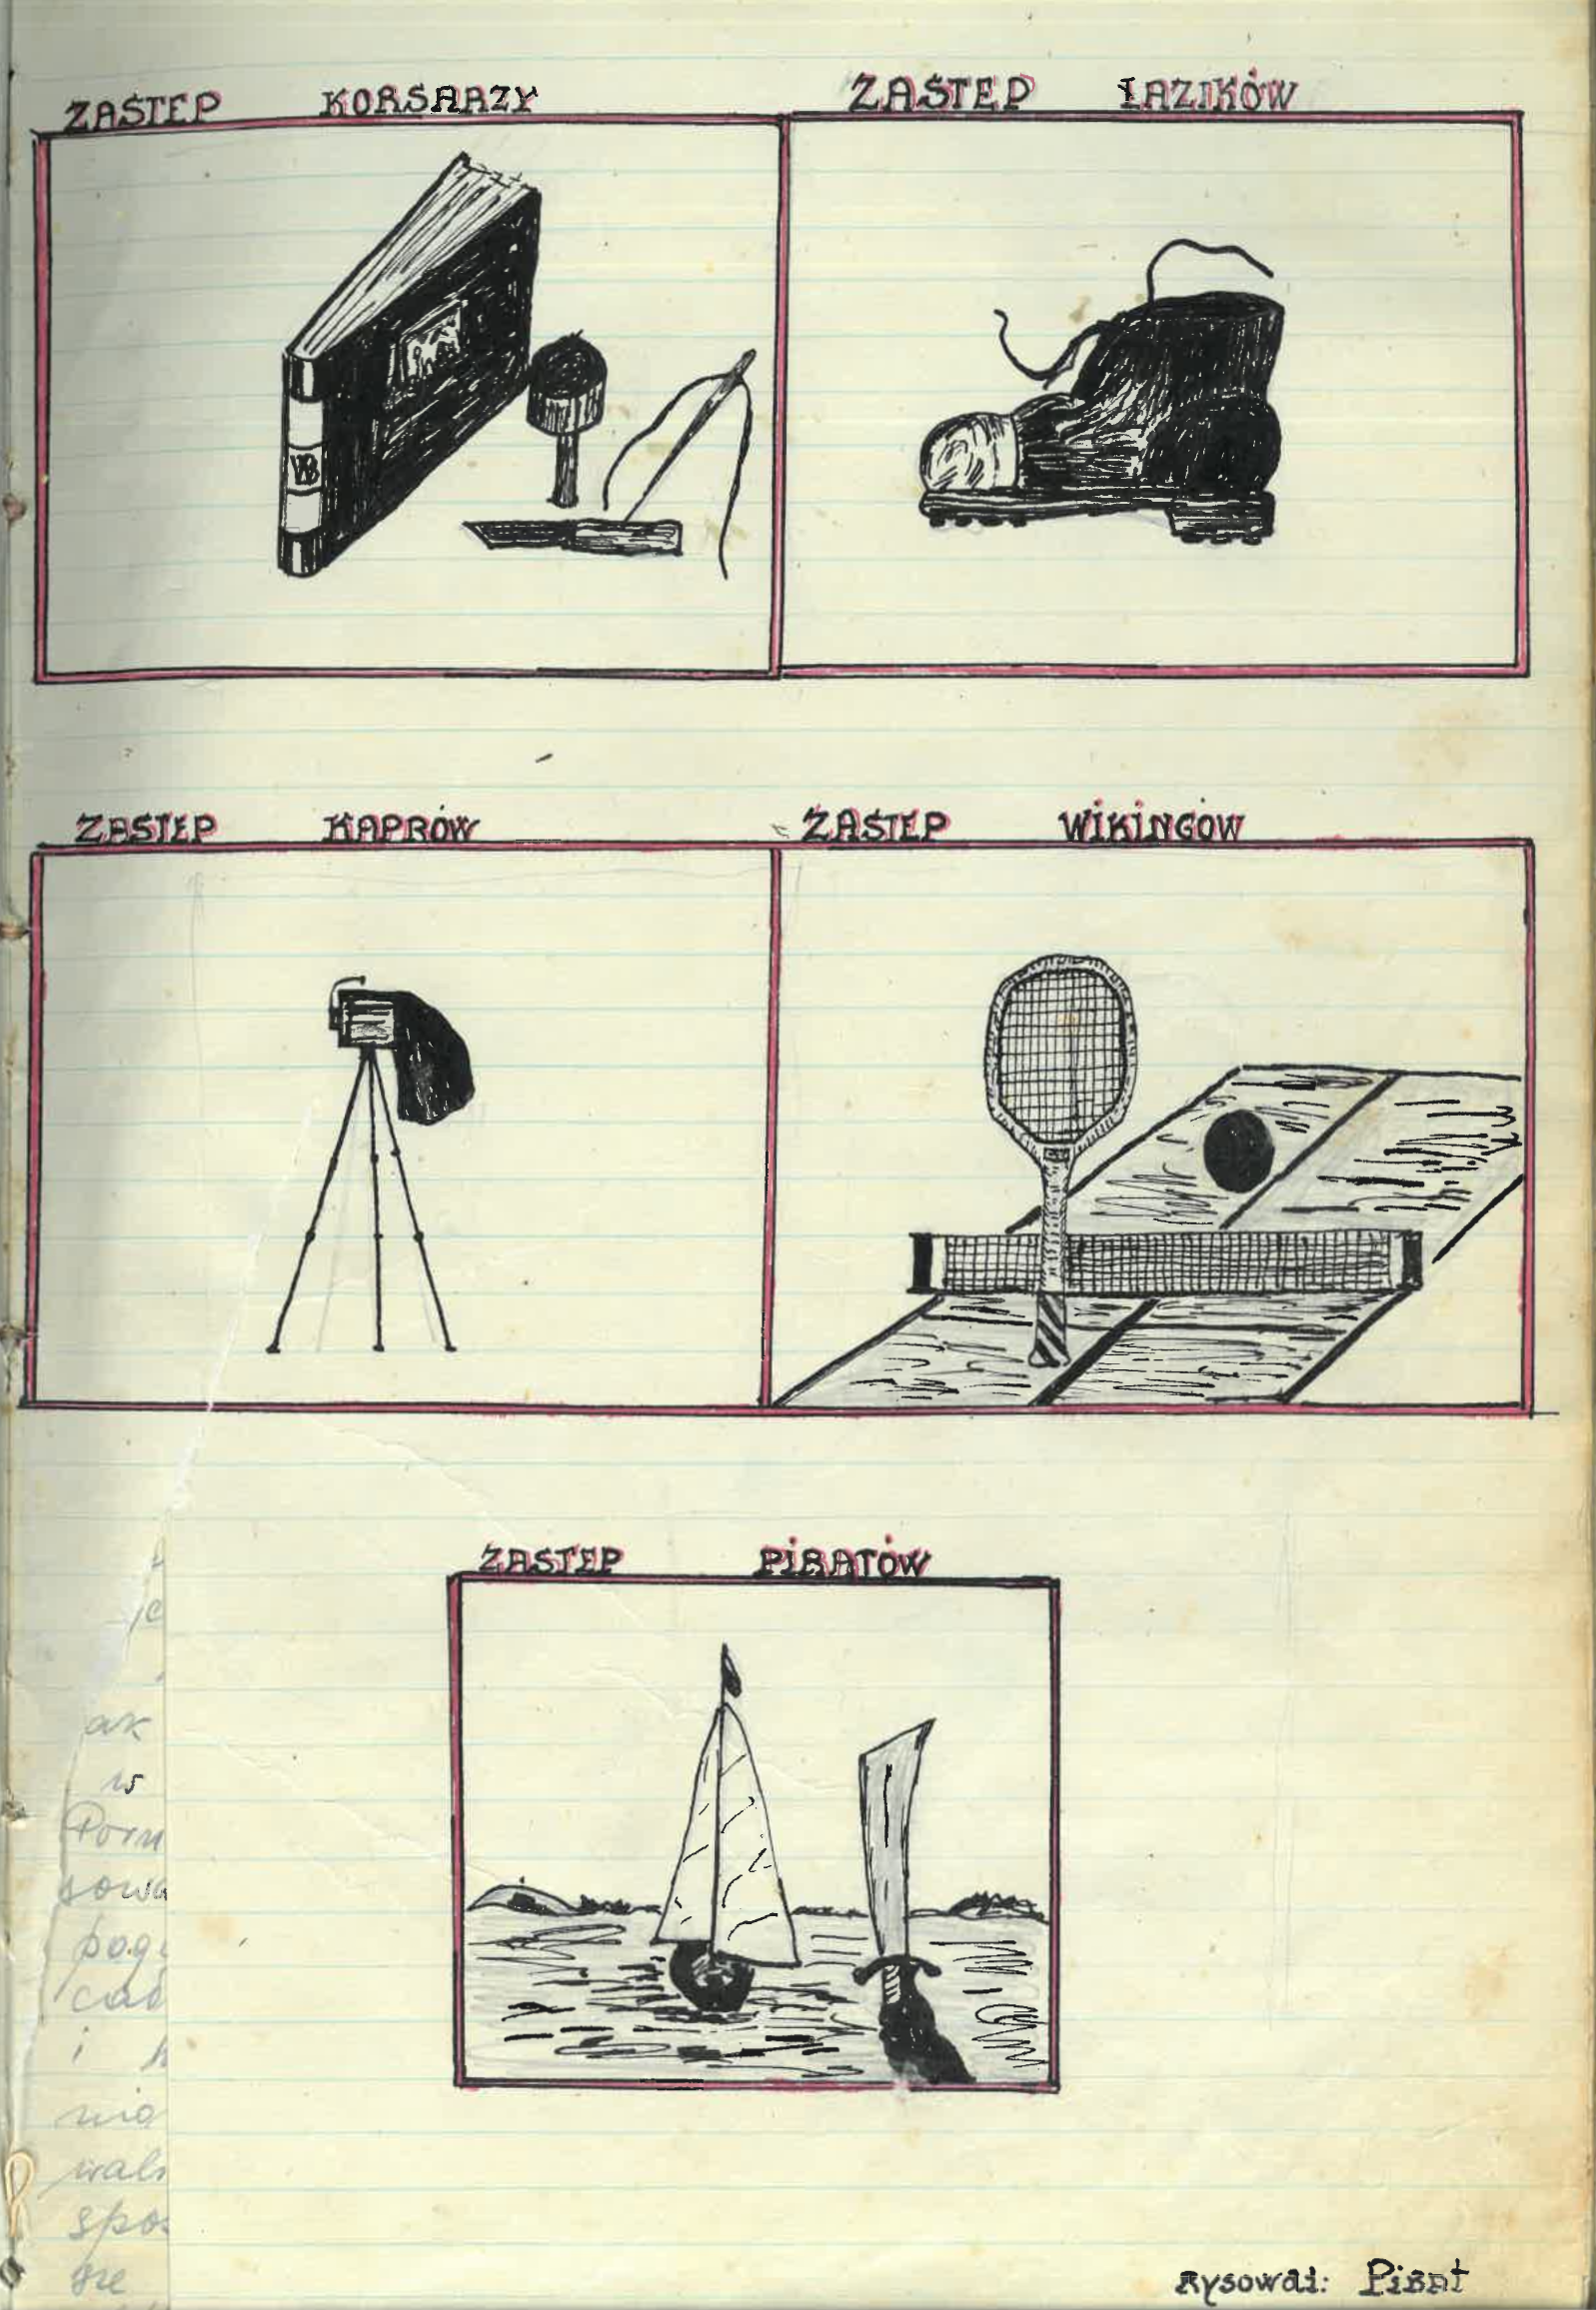 ZASTEP KORSARZY
ZASTEP ŁAZIKÓW
WB
ZASTEP KAPRÓW
ZASTEP WIKINGÓW
ZASTEP PIRATÓW
ak
w
Pom
sowa
pog
cał
i
nia
wals
spo
gre
Rysował: Pirat